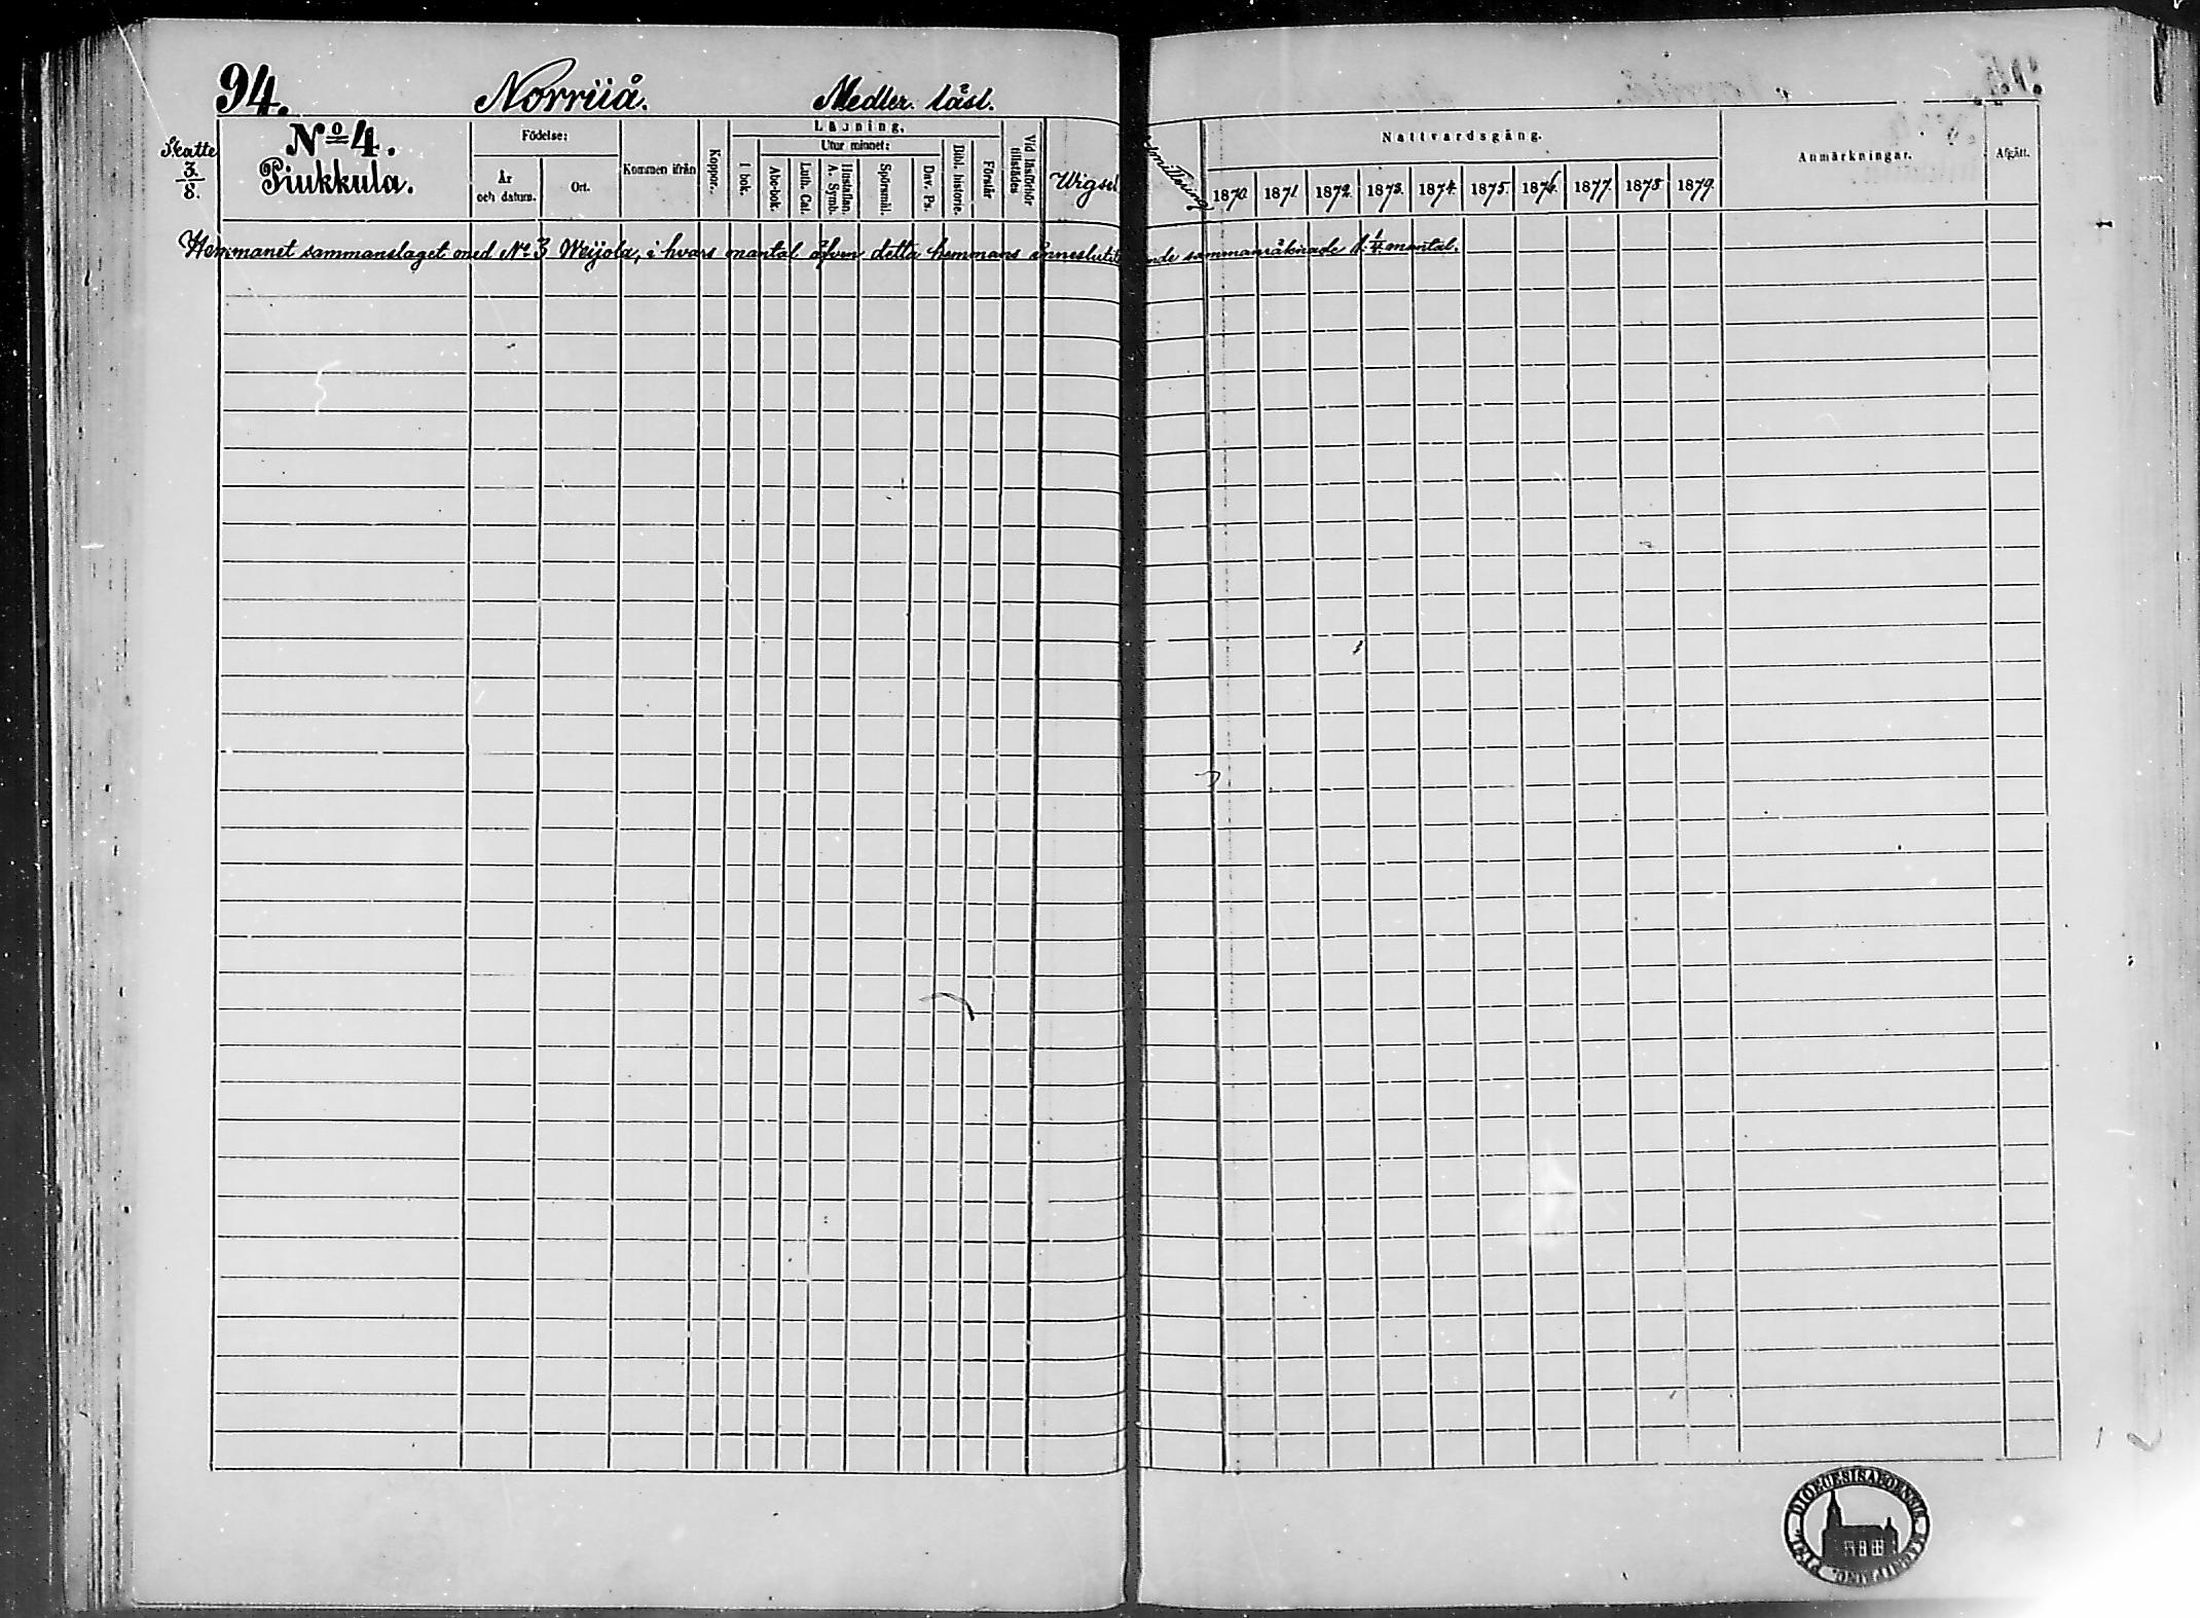 94. Norriiå. Medler. läst.
Skatte 3/8.
No 4.
Piukkula.
Födelse:
År
och datum.
Ort.
Kommen ifrån
Koppor.
Läsning.
Utur minnet:
I bok.
Abc-bok.
Luth. Cat.
Hustaflan.
A. Symb.
Spörsmål.
Dav. Ps.
Bibl. historie.
Förstår
Vid läsförhör
tillstädes
Nattvardsgång.
1870. 1871. 1872. 1873. 1874. 1875. 1876. 1877. 1878 1879.
Anmärkningar.
Afgått.
Hemmanet sammanslaget med No 3 Weijola, i hvars mantal äfven detta hemmans sammanräknade 1/4 mantal.